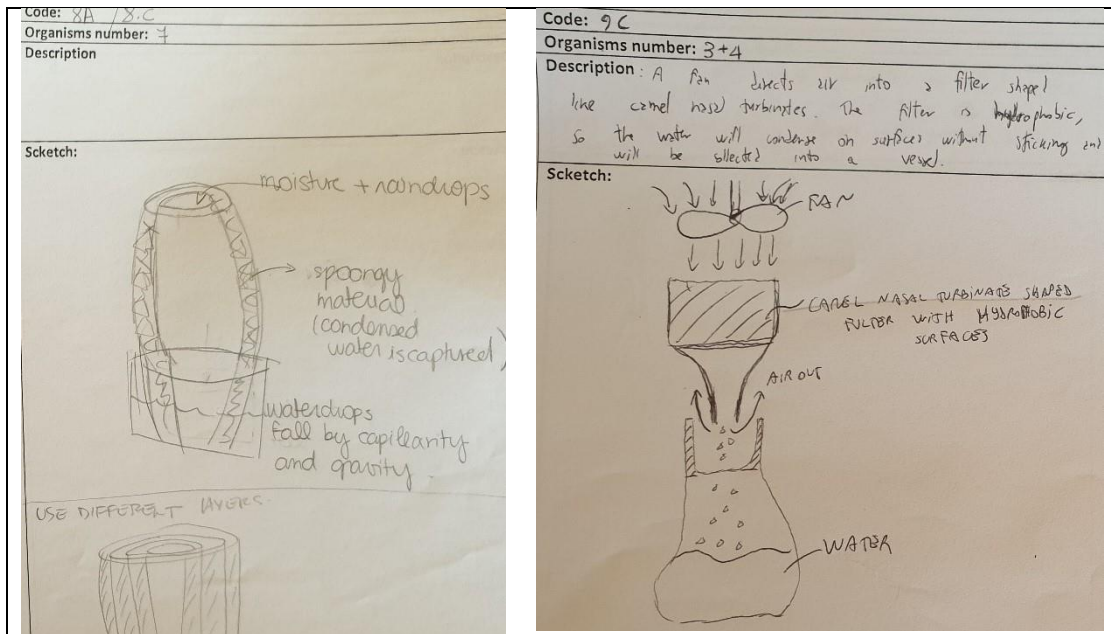 Code: 8A / 8.C
Organisms number: 7
Description
Scketch:
moisture + raindrops
spoongy
material
(condensed
water is captured)
waterdrops
fall by capillarity
and gravity.
USE DIFFERENT LAYERS.
Code: 9C
Organisms number: 3+4
Description: A fan directs air into a filter shaped
like camel nasal turbinates. The filter is hydrophobic,
so the water will condense on surfaces without sticking and
will be collected into a vessel.
Scketch:
FAN
CAMEL NASAL TURBINATE SHAPED
FILTER WITH HYDROPHOBIC
SURFACES
AIR OUT
WATER